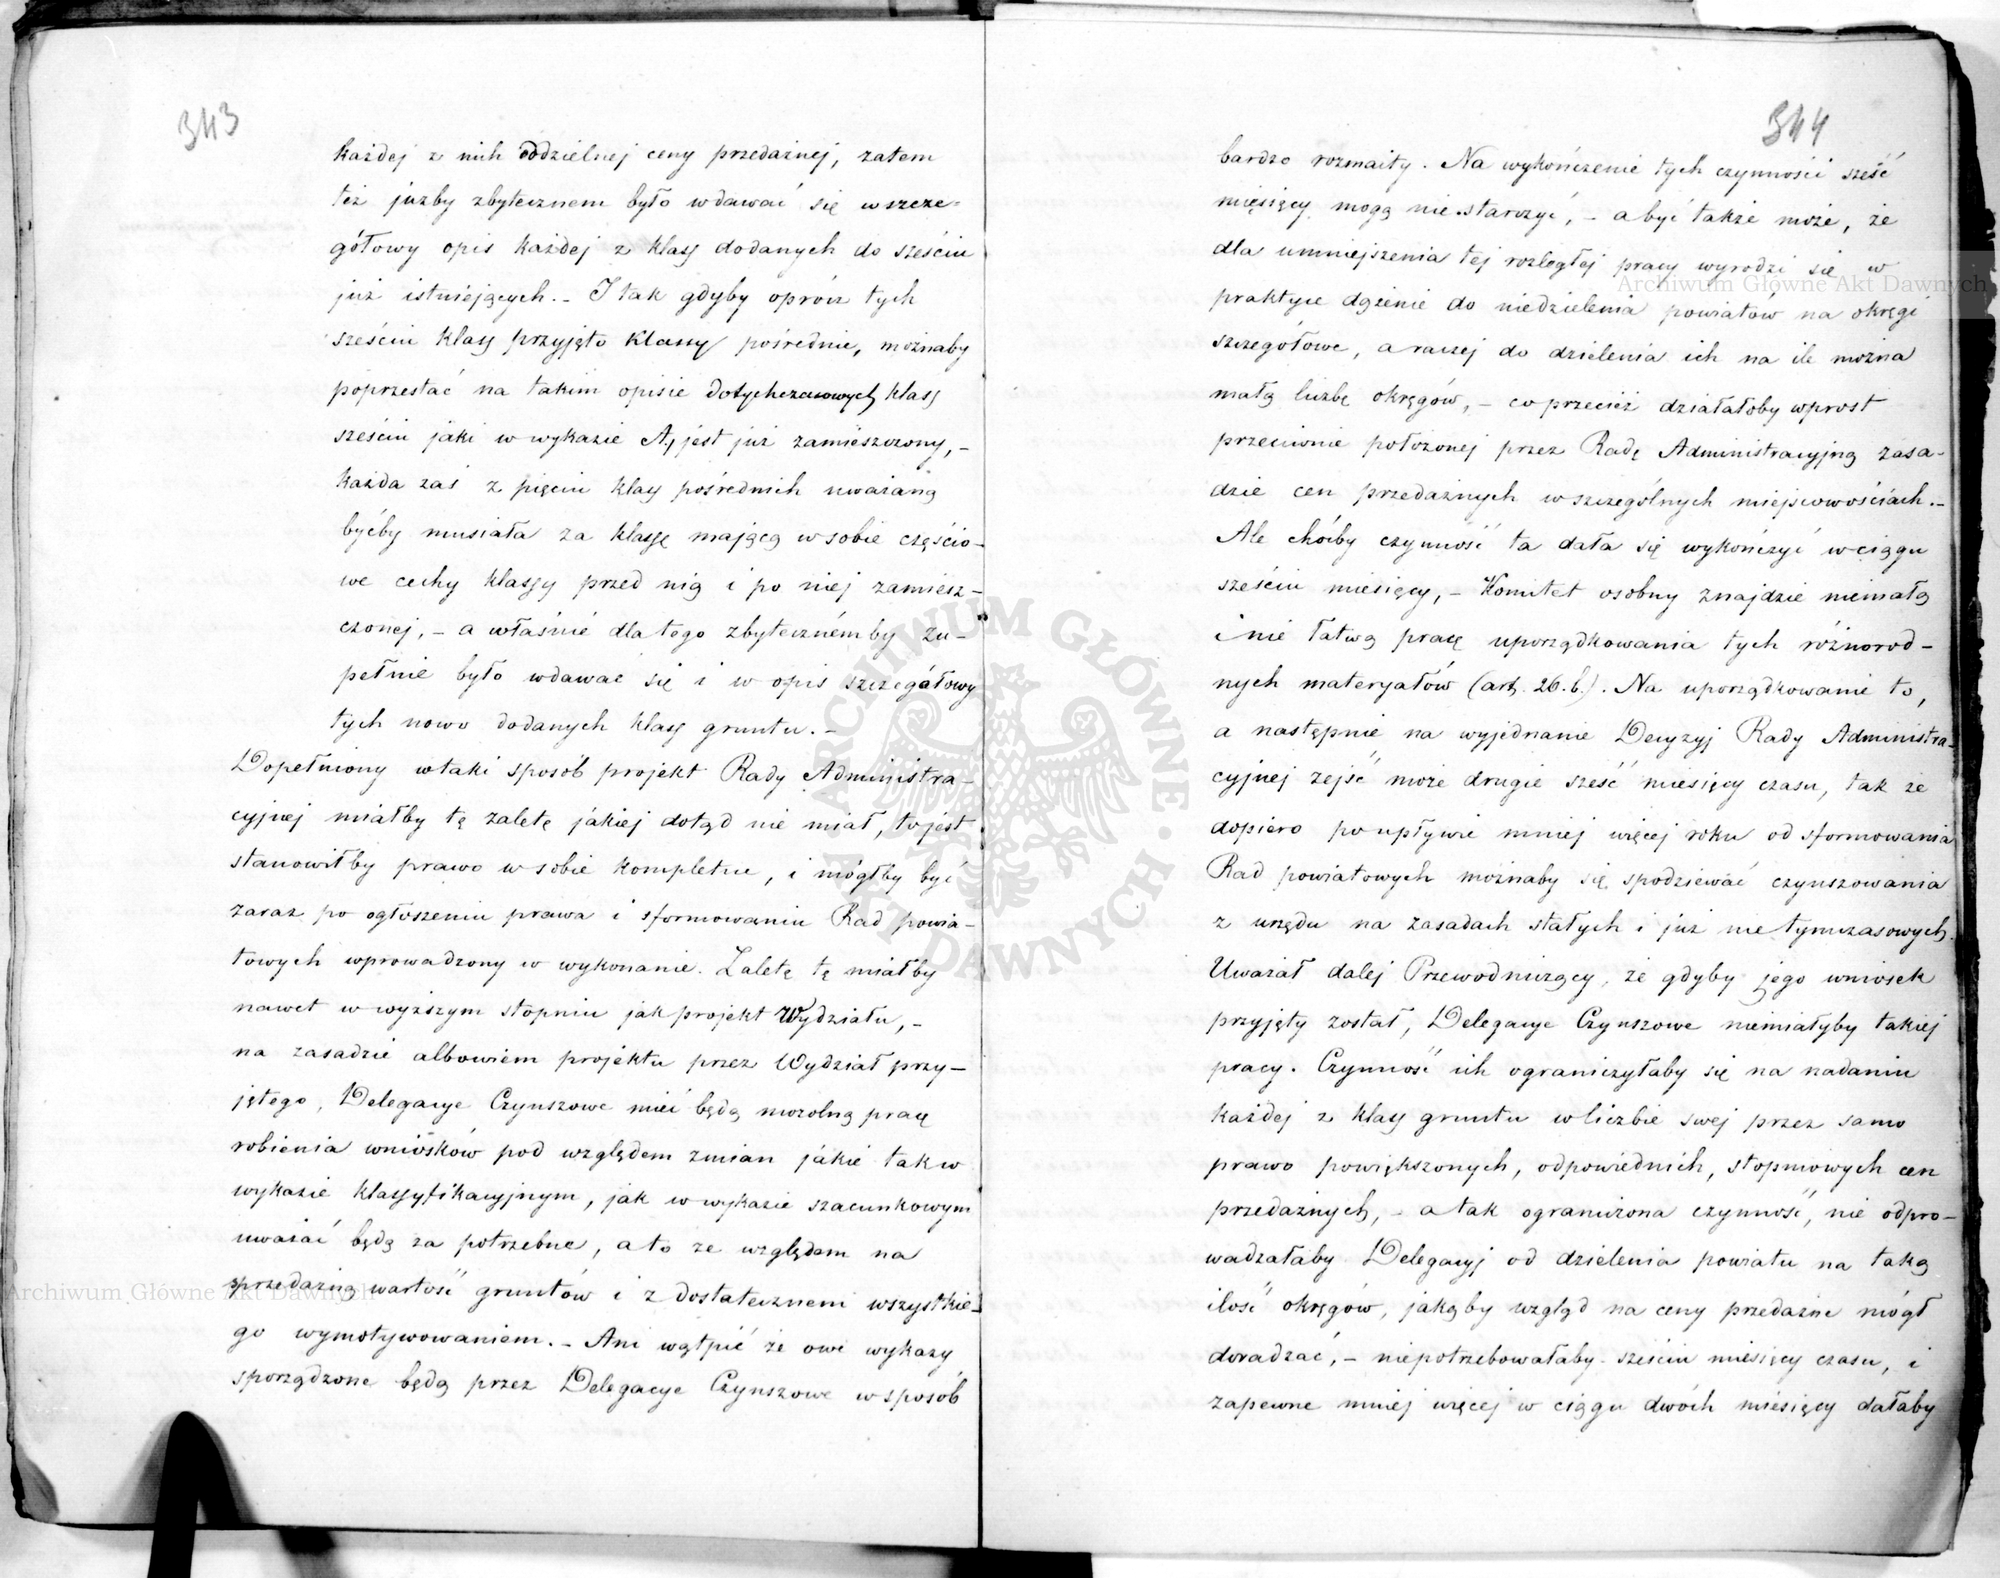 343
każdej z nich oddzielnej ceny przedażnej, zatem
też jużby zbytecznem było wdawać się w szcze-
gółowy opis każdej z klass dodanych do sześciu
już istniejących. - I tak gdyby oprócz tych
sześciu klass przyjęto klassy pośrednie, możnaby
poprzestać na takim opisie dotychczasowych klass
sześciu jaki w wykazie A, jest już zamieszczony, -
każda zaś z pięciu klass pośrednich uważaną
byćby musiała za klassę mającą w sobie częścio-
we cechy klassy przed nią i po niej zamiesz-
czonej, - a właśnie dla tego zbytecznémby zu-
pełnie było wdawać się i w opis szczegółowy
tych nowo dodanych klass gruntu. -
Dopełniony w taki sposób projekt Rady Administra-
cyjnej miałby tę zaletę jakiej dotąd nie miał, to jest
stanowiłby prawo w sobie kompletne, i mógłby być
zaraz po ogłoszeniu prawa i sformowaniu Rad powia-
towych wprowadzony w wykonanie. Zaletę tę miałby
nawet w wyższym stopniu jak projekt Wydziału, -
na zasadzie albowiem projektu przez Wydział przy-
jętego, Delegacye Czynszowe mieć będą mozolną pracę
robienia wniosków pod względem zmian jakie tak w
wykazie klassyfikacyjnym, jak w wykazie szacunkowym
uważać będą za potrzebne, a to ze względem na
sprzedażną wartość gruntów i z dostatecznem wszystkie-
go wymotywowaniem. - Ani wątpić że owe wykazy
sporządzone będą przez Delegacye Czynszowe w sposób
344
bardzo rozmaity. Na wykończenie tych czynności sześć
miesięcy mogą nie starczyć, - a być także może, że
dla umniejszenia tej rozległej pracy wyrodzi się w
praktyce dążenie do niedzielenia powiatów na okręgi
szczegółowe, a raczej do dzielenia ich na ile można
małą liczbę okręgów, - co przecież działałoby wprost
przeciwnie położonej przez Radę Administracyjną zasa-
dzie cen przedażnych w szczególnych miejscowościach. -
Ale choćby czynność ta dała się wykończyć w ciągu
sześciu miesięcy, - Komitet osobny znajdzie niemałą
i nie łatwą pracę uporządkowania tych różnorod-
nych materyałów (art. 26. b.). Na uporządkowanie to,
a następnie na wyjednanie Decyzyj Rady Administra-
cyjnej zejść może drugie sześć miesięcy czasu, tak że
dopiero po upływie mniej więcej roku od sformowania
Rad powiatowych możnaby się spodziewać czynszowania
z urzędu na zasadach stałych i już nie tymczasowych.
Uważał dalej Przewodniczący, że gdyby jego wniosek
przyjęty został, Delegacye Czynszowe niemiałyby takiej
pracy. Czynność ich ograniczyłaby się na nadaniu
każdej z klass gruntu w liczbie swej przez samo
prawo powiększonych, odpowiednich, stopniowych cen
przedażnych, - a tak ograniczona czynność, nie odpro-
wadzałaby Delegacyj od dzielenia powiatu na taką
ilość okręgów, jakąby wzgląd na ceny przedażne mógł
doradzać, - niepotrzebowałaby sześciu miesięcy czasu, i
zapewne mniej więcej w ciągu dwóch miesięcy dałaby
Archiwum Główne Akt Dawnych
Archiwum Główne Akt Dawnych
ARCHIWUM GŁÓWNE AKT DAWNYCH